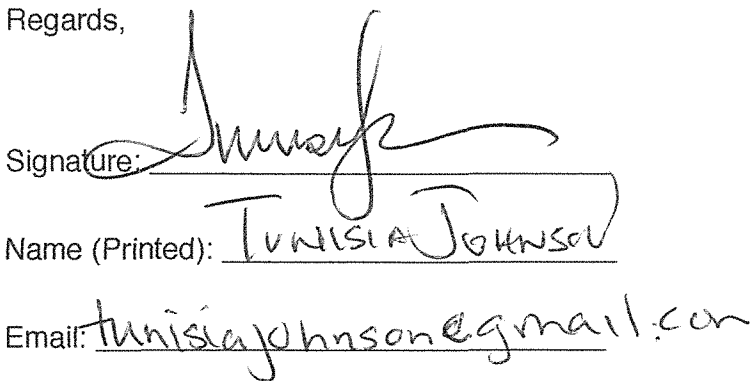 Regards,
Signature:
Name (Printed): TUNISIA JOHNSON
Email: tunisiajohnson@gmail.com